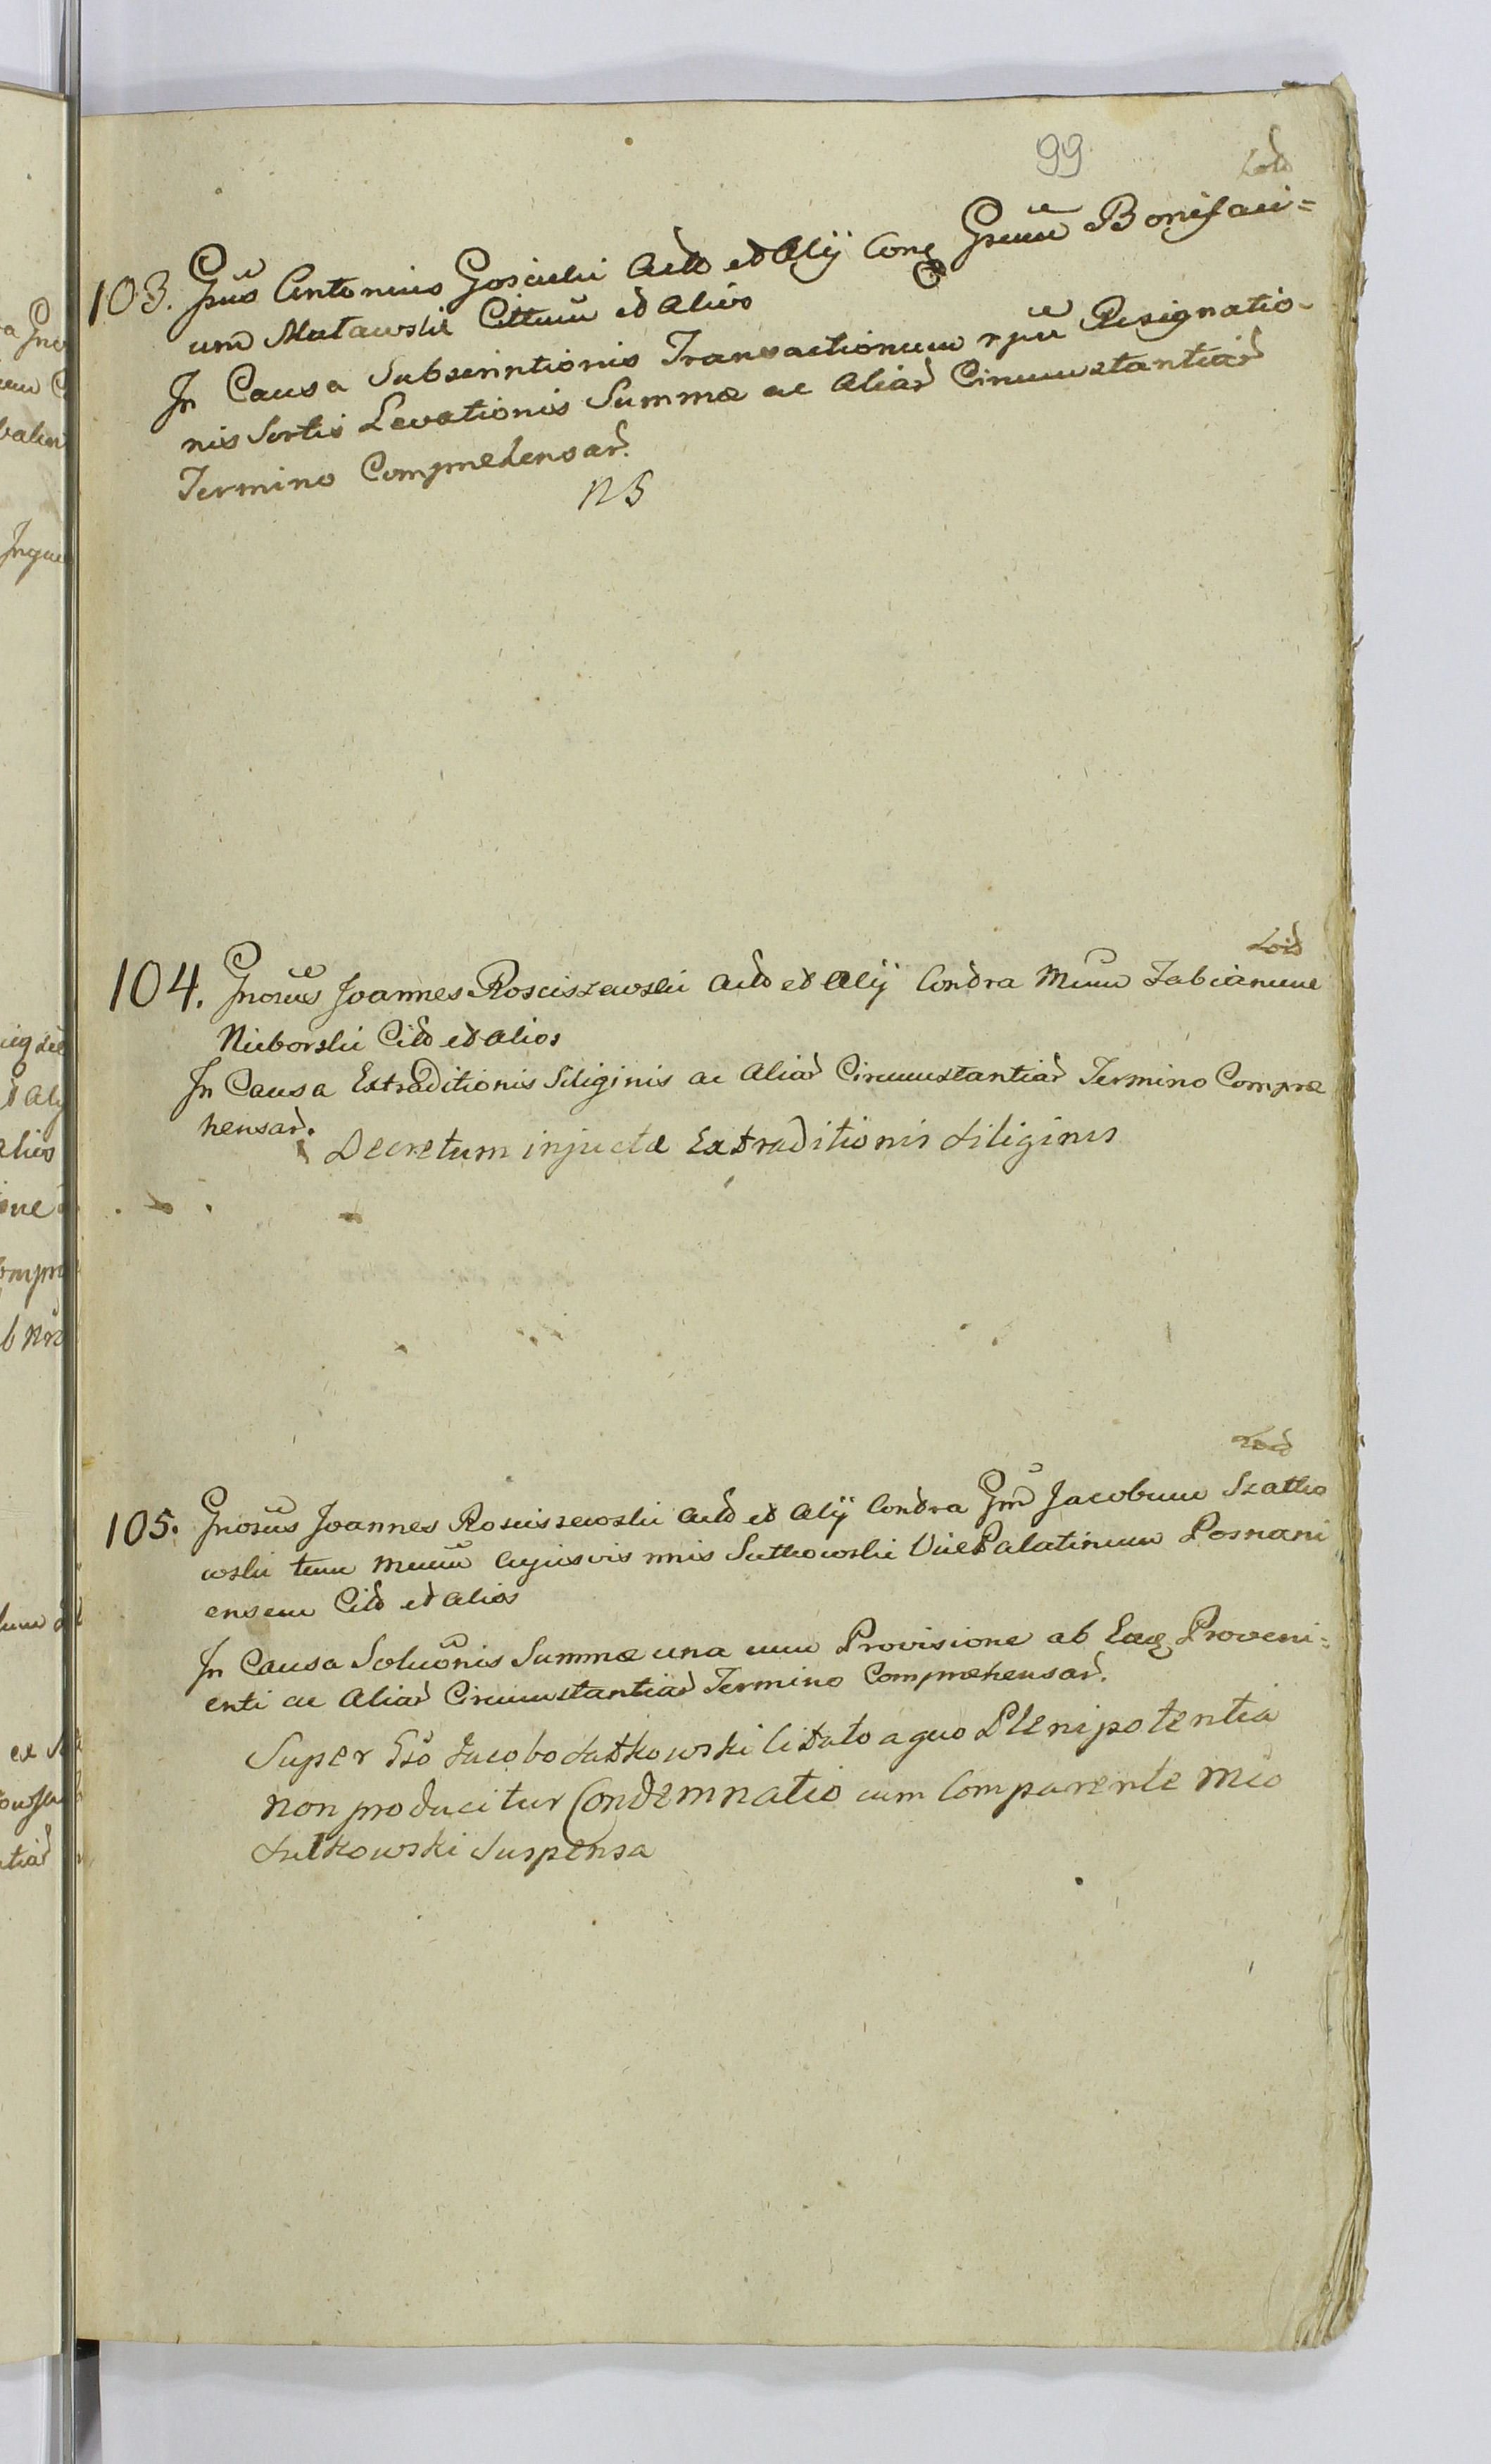 99
103. Gsus Antonius Goscicki Actt et Alij Con Gsum Bonifaci=
um Mutawski Cittum et Alios
In Causa Subscriptionis Transactionum rpu Resignatio-
nis Sortis Levationis Summæ ac Aliar Circumstantiar
Termino Comprehensar.
NS
104. Gnosus Joannes Rosciszewski Actt et Alij Contra Mcum Fabianum
Nieborski Citt et Alios
In Causa Extraditionis Siliginis ac Aliar Circumstantiar Termino Compræ
hensar.
Decretum injuctæ Extraditionis Siliginis
105. Gnosus Joannes Rosciszewski Actt et Alij Contra Gm Jacobum Szatko
wski tum Mcum Cujusvis nnis Sutkowski Vice Palatinum Posnani
ensem Citt et Alios
In Causa Soluonis Summæ una cum Provisione ab Eaq Proveni=
enti ac Aliar Circumstantiar Termino Comprehensar.
Super Gso Jacobo Satkowski Citato a quo Plenipotentia
non producitur Condemnatio cum Comparente Mco
Sutkowski Suspensa